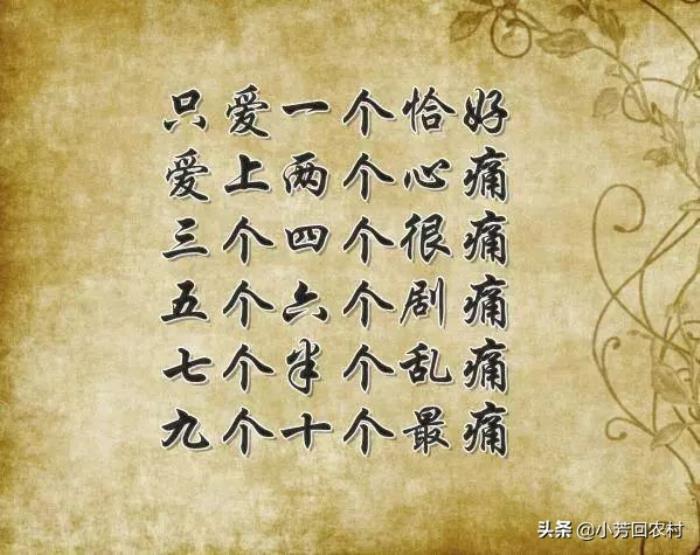 只爱一个恰好
爱上两个心痛
三个四个很痛
五个六个剧痛
七个半个乱痛
九个十个最痛
头条 @小芳回农村